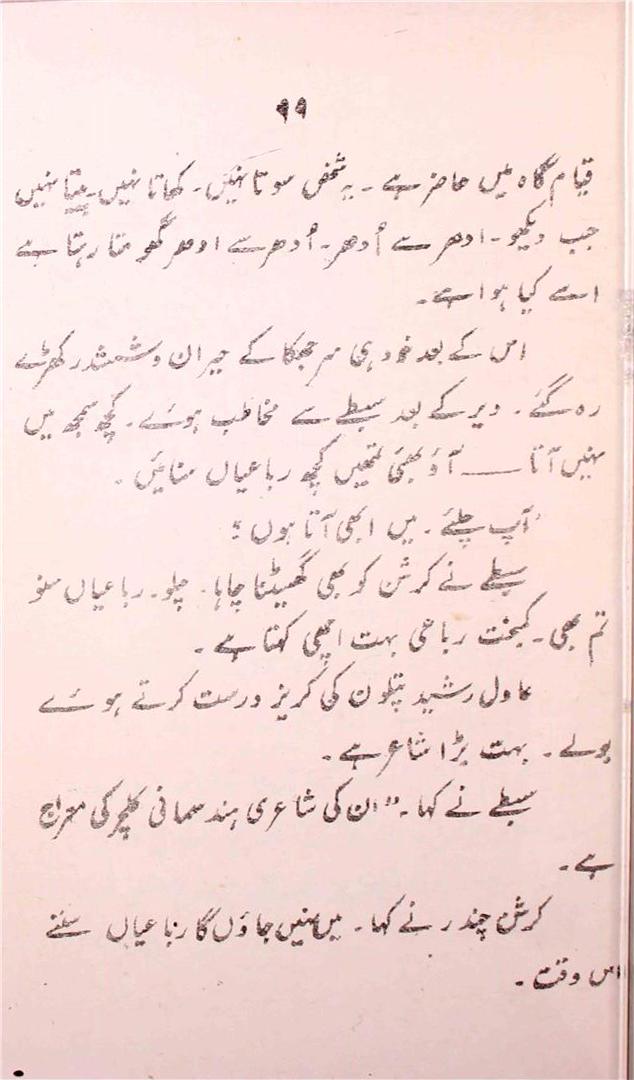 ۹۹
قیام گاہ میں حاضر ہے۔ یہ شخص سوتا نہیں۔ کھاتا نہیں۔ پیتا نہیں
جب دیکھو۔ ادھر سے اُدھر۔ اُدھر سے ادھر گھومتا رہتا ہے
اسے کیا ہوا ہے۔
اس کے بعد خود ہی سر جھکا کے حیران و ششدر کھڑے
رہ گئے۔ دیر کے بعد سبطے سے مخاطب ہوئے۔ کچھ سمجھ میں
نہیں آتا ــــــ آؤ بھئی تمہیں کچھ رباعیاں سنائیں۔
آپ چلئے۔ میں ابھی آتا ہوں؛
سبطے نے کرشن کو بھی گھسیٹنا چاہا۔ چلو۔ رباعیاں سنو
تم بھی۔ کمبخت رباعی بہت اچھی کہتا ہے۔
عادل رشید پتلون کی کریز درست کرتے ہوئے
بولے۔ بہت بڑا شاعر ہے۔
سبطے نے کہا۔ "ان کی شاعری ہند سمانی کلچر کی معراج
ہے۔
کرشن چندر نے کہا۔ میں نہیں جاؤں گا رباعیاں سننے
اس وقت۔